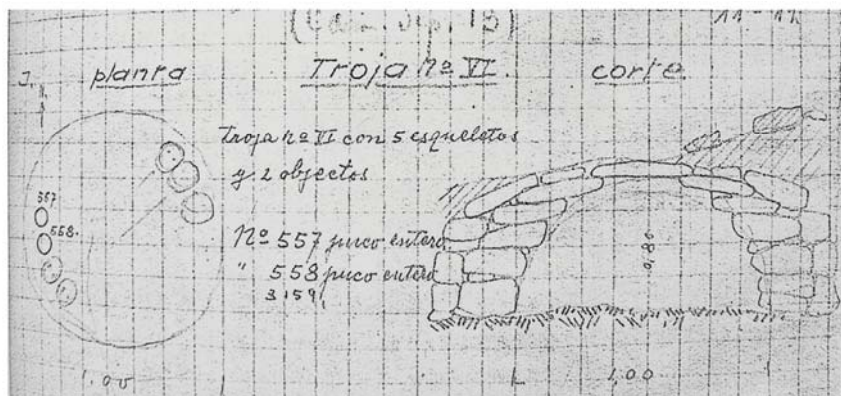 11-12
planta
Troja nº VI.
corte
Troja nº VI con 5 esqueletos
y 2 objectos
557
558.
Nº 557 puco entero
" 558 puco entero
3159,
0,80
1,00
1,00